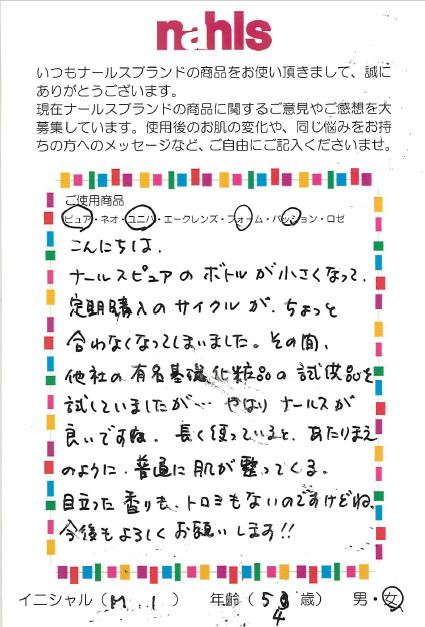 nahls
いつもナールスブランドの商品をお使い頂きまして、誠に
ありがとうございます。
現在ナールスブランドの商品に関するご意見やご感想を大
募集しています。使用後のお肌の変化や、同じ悩みをお持
ちの方へのメッセージなど、ご自由にご記入くださいませ。
ご使用商品
ピュア・ネオ・ユニバ・エークレンズ・フォーム・パッション・ロゼ
こんにちは、
ナールスピュアのボトルが小さくなって、
定期購入のサイクルが、ちょっと
合わなくなってしまいました。その間、
他社の有名基礎化粧品の試供品を
試していましたが… やはりナールスが
良いですね。長く使っていると、あたりまえ
のように、普通に肌が整ってくる。
目立った香りも、トロミもないのですけどね。
今後もよろしくお願いします!!
イニシャル（M I ） 年齢（5 歳） 男・女
4